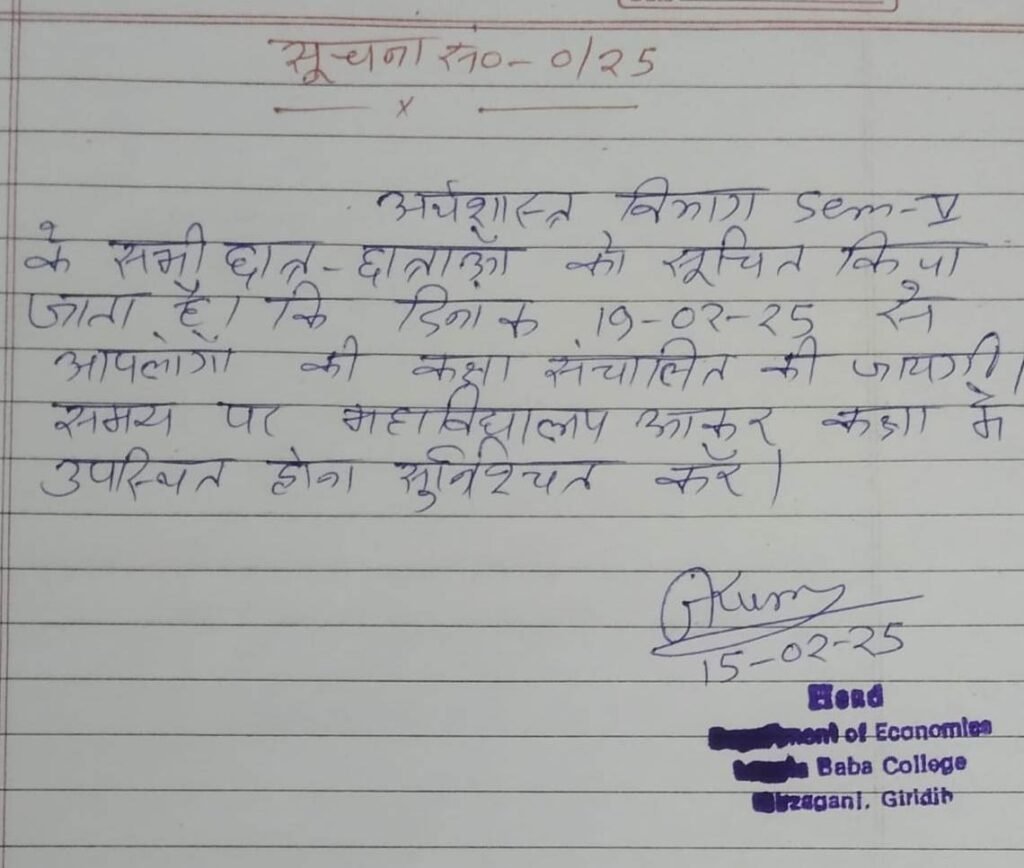 सूचना सं०- 0/25
x
अर्थशास्त्र विभाग Sem-V
के सभी छात्र-छात्राओं को सूचित किया
जाता है। कि दिनांक 19-02-25 से
आपलोगों की कक्षा संचालित की जायगी।
समय पर महाविद्यालय आकर कक्षा में
उपस्थित होना सुनिश्चित करें।
15-02-25
Head
of Economics
Baba College
Giridih